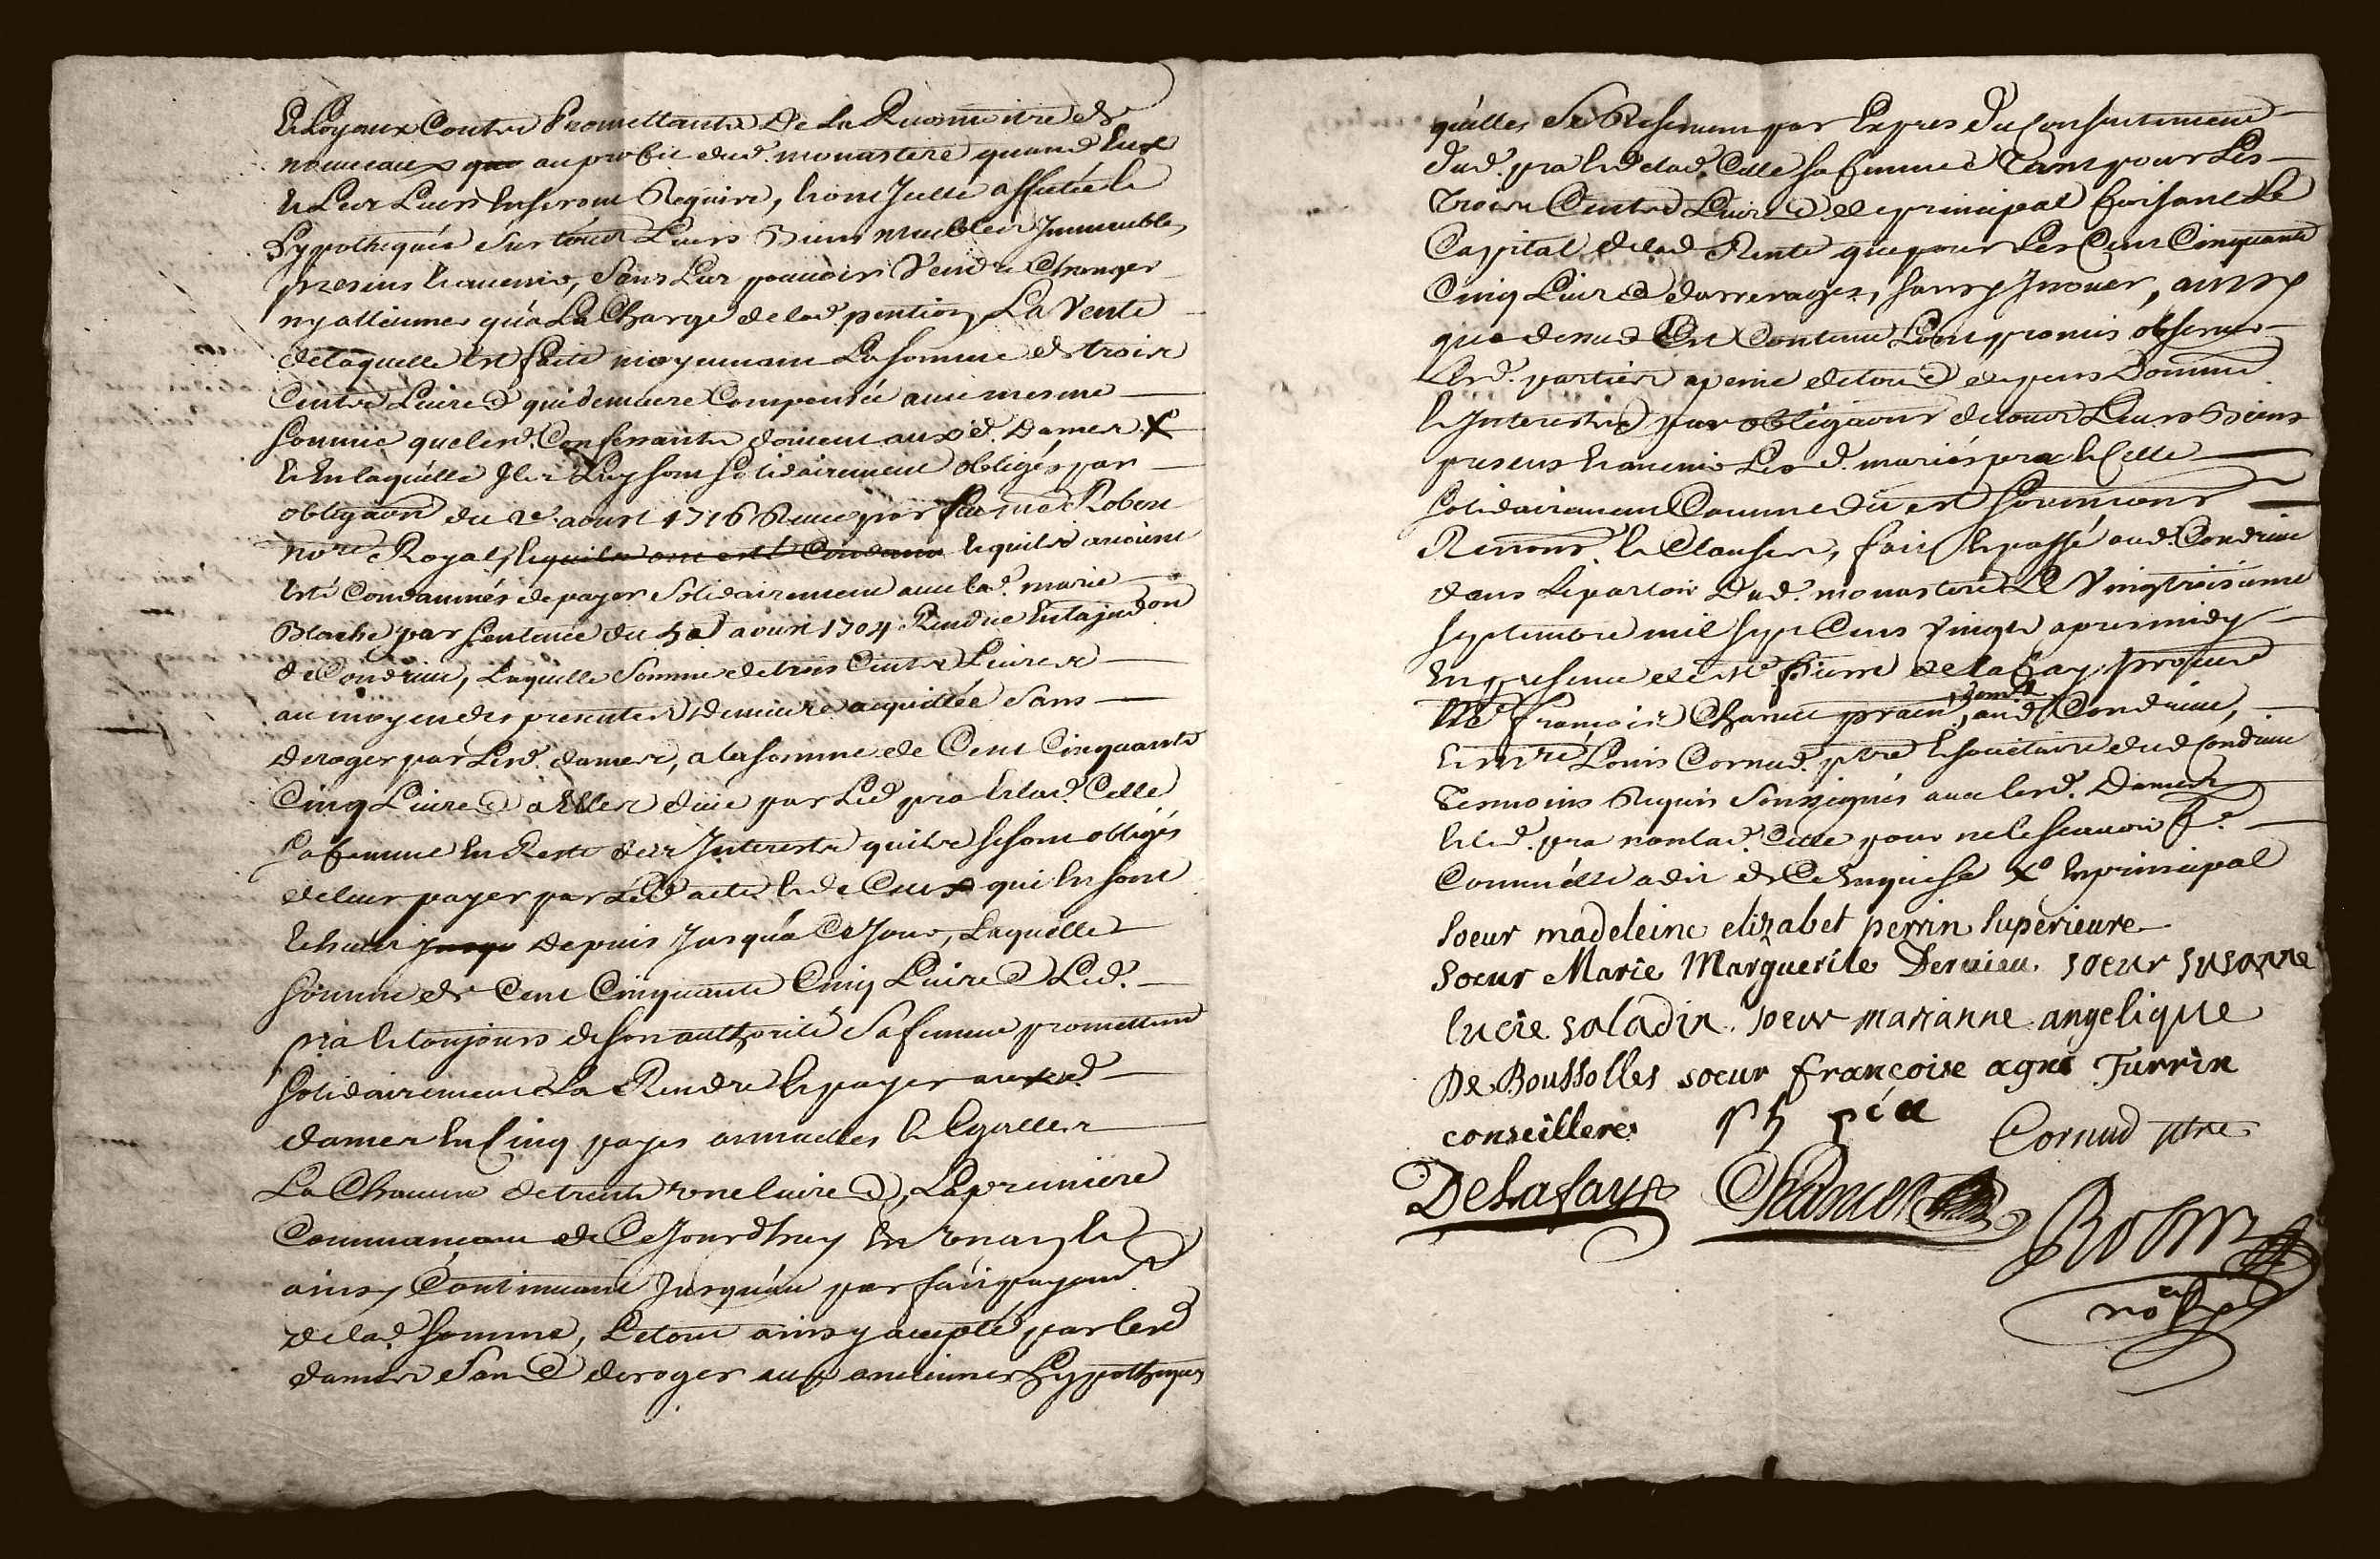 Et Loyaux Contre Promettants De La Reconnoitre de
nouveaux que au profit dud. monastere quand Eux
Et Leur Leurs En seront Requise, Et ont Icelle affectée Et
hypothequée Sur tous Leurs Biens meubles Immeubles
presens Et avenir, Sans Les pouvoir Vendre Changer
ny alliener qu'a La Charge de lad. pention, La Vente
de laquelle Est faite moyennant La somme de trois
Cents Livres qui demeure Compensée avec mesme
somme que lesd. Confessants doivent auxd. Dames X
Et En laquelle Ils Luy sont solidairement obligés par
obligaon du 2e aoust 1716 Receue par feu me Robert
nore Royal, Et quils ont esté Condam Et quils avoient
Esté Condamnés de payer Solidairement avec lad. marie
Blache par sentence du avril 1704 Rendue En la jurdon
de Condrieu, Laquelle Somme de trois Cents Livres
au moyen des presentes Demeure acquittée Sans
deroger par Lesd. dames, a la somme de Cent Cinquante
Cinq Livres a Elles düe par Led. pra Et lad. Celle
sa femme En Reste des Interests quils se sont obligés
de leur payer par Led. acte Et de Ceux qui En sont
Echeus jusqu Depuis Jusqu'a Ce Jour, Laquelle
somme de Cent Cinquante Cinq Livres Led.
pra Et toujours de son authorité Sa femme promettent
solidairement La Rendre Et payer auxd.
dames En Cinq payes annuelles Et Egalles
La Chacune de trente une livres, La premiere
Commançant de Ce Jourdhuy En un an, Et
ainsy Continuant Jusqu'au parfait payemt
de lad. somme, Le tout ainsy accepté par lesd
dames Sans deroger aux anciennes hypotheques
quelles Se Reservent par Expres du Consentement
dud. pra Et de lad. Celle sa femme Tant pour Les
Trois Cents Livres de principal faisant Le
Cappital de lad. Rente que pour Les Cent Cinquante
Cinq Livres darrerages, sans y Inover, ainsy
que dessus Est Contenu L'ont promis observer
Lesd. parties a peine de tous depens Dommes
Et Interests par obligaons de tous Leurs Biens
presens Et avenir Lesd. mariés pra Et Celle
solidairement Comme dit est soumions
Renons Et Clauses, fait Et passé aud. Condrieu
dans Le parloir Dud. monastere Le Vingtroisieme
septembre mil sept Cens Vingt apres midy
En presence de Me Pierre de la Fay, procure
Me François Chanuet pratn, demt aud. Condrieu,
Et mre Louis Cornud ptre Et societaire dud. Condrieu
Temoins Requis Soussignés avec lesd. Dames
Et led. pra non lad. Celle pour ne le scavoir fe.
Comm'elle a dit de Ce Enquise Xo En principal
soeur madeleine elizabet perrin superieure
soeur Marie Marguerite Dervieu soeur susanne
lucie saladin soeur marianne angelique
De Boussolles soeur françoise agné Turrin
conseilleres pra
Cornud ptre
Delafaye Chanuet
Robert